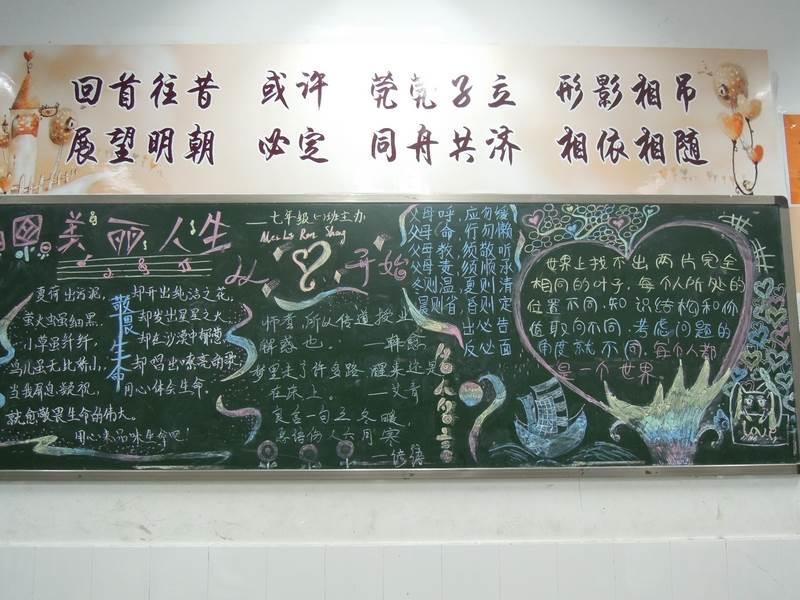 回首往昔 或许 茕茕孑立 形影相吊
展望明朝 必定 同舟共济 相依相随
美丽人生
——七年级(1)班主办
Mei Li Ren Sheng
从 心 开始
敬畏生命
夏荷出污泥, 却开出纯洁之花,
萤火虫虽细黑, 却发出星星之火
小草虽纤纤,
鸟儿虽无比娇小, 却唱出嘹亮的歌
当我屏息凝视, 用心体会生命,
就愈敬畏生命的伟大。
用心来品味生命吧!
师者,所以传道授业
解惑也。 ——韩愈
梦里走了许多路 醒来还是
在床上。 ——艾青
良言一句三冬暖,
恶语伤人六月寒
父母呼 应勿缓
父母命 行勿懒
父母教 须敬听
父母责 须顺承
冬则温 夏则清
晨则省 昏则定
出必告
反必面
世界上找不出两片完全
相同的叶子,每个人所处的
位置不同,知识结构和价
值取向不同,考虑问题的
角度就不同,每个人都
是一个世界